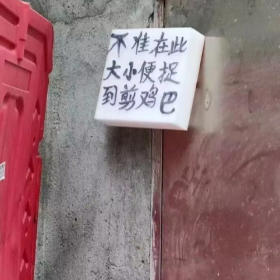 不准在此
大小便捉
到剪鸡巴